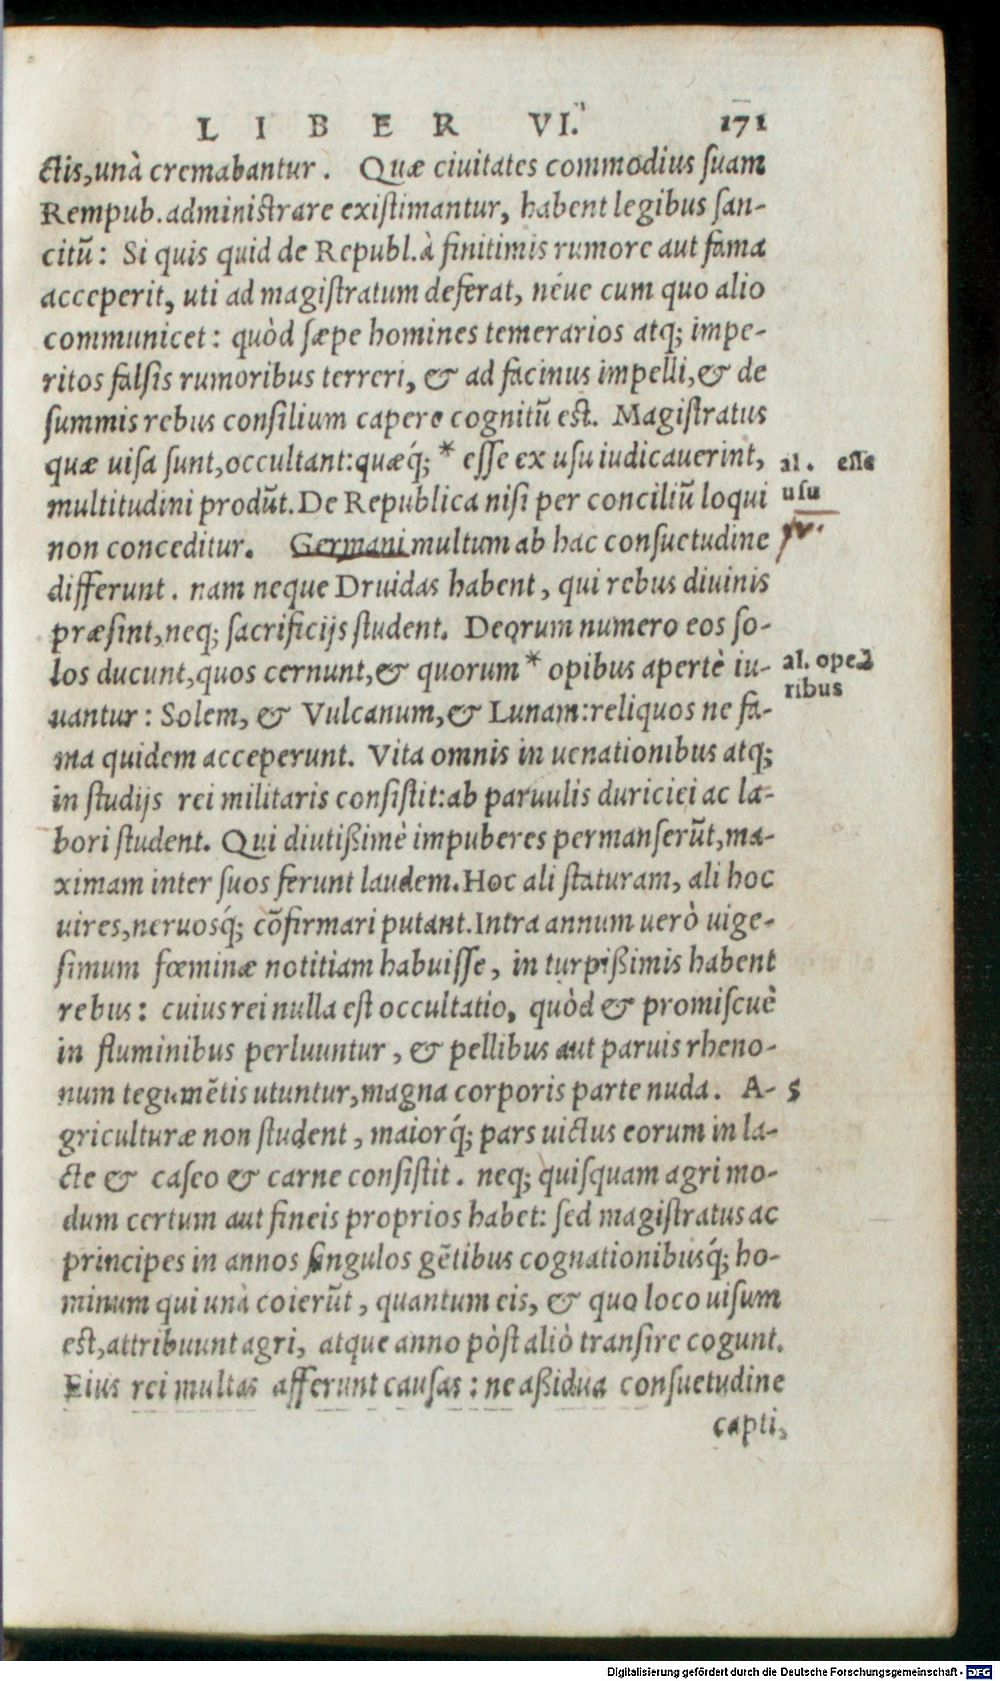 LIBER VI. 171
ctis, unà cremabantur. Quæ ciuitates commodius ſuam
Rempub. adminiſtrare exiſtimantur, habent legibus ſan-
citũ: Si quis quid de Republ. à finitimis rumore aut fama
acceperit, uti ad magiſtratum deferat, néue cum quo alio
communicet: quòd ſæpe homines temerarios atq; impe-
ritos falſis rumoribus terreri, & ad facinus impelli, & de
ſummis rebus conſilium capere cognitũ eſt. Magiſtratus
quæ uiſa ſunt, occultant: quæq́; * eſſe ex uſu iudicauerint,
al. eſſe
multitudini produ̅t. De Republica niſi per conciliũ loqui
uſu
non conceditur. Germani multum ab hac conſuetudine
differunt. nam neque Druidas habent, qui rebus diuinis
præſint, neq; ſacrificijs ſtudent. Deorum numero eos ſo-
los ducunt, quos cernunt, & quorum * opibus apertè iu-
al. ope-
ribus
uantur: Solem, & Vulcanum, & Lunam: reliquos ne fa-
ma quidem acceperunt. Vita omnis in uenationibus atq;
in ſtudijs rei militaris conſiſtit: ab paruulis duriciei ac la-
bori ſtudent. Qui diutißimè impuberes permanſerũt, ma-
ximam inter ſuos ferunt laudem. Hoc ali ſtaturam, ali hoc
uires, neruosq́; cõfirmari putant. Intra annum uerò uige-
ſimum fœminæ notitiam habuiſſe, in turpißimis habent
rebus: cuius rei nulla eſt occultatio, quòd & promiſcuè
in fluminibus perluuntur, & pellibus aut paruis rheno-
num tegumẽtis utuntur, magna corporis parte nuda. A- 5
griculturæ non ſtudent, maiorq́; pars uictus eorum in la-
cte & caſeo & carne conſiſtit. neq; quiſquam agri mo-
dum certum aut fineis proprios habet: ſed magiſtratus ac
principes in annos ſingulos gẽtibus cognationibusq́; ho-
minum qui unà coierũt, quantum eis, & quo loco uiſum
eſt, attribuunt agri, atque anno pòſt aliò tranſire cogunt.
Eius rei multas afferunt cauſas: ne aßidua conſuetudine
capti,
Digitalisierung gefördert durch die Deutsche Forschungsgemeinschaft - DFG